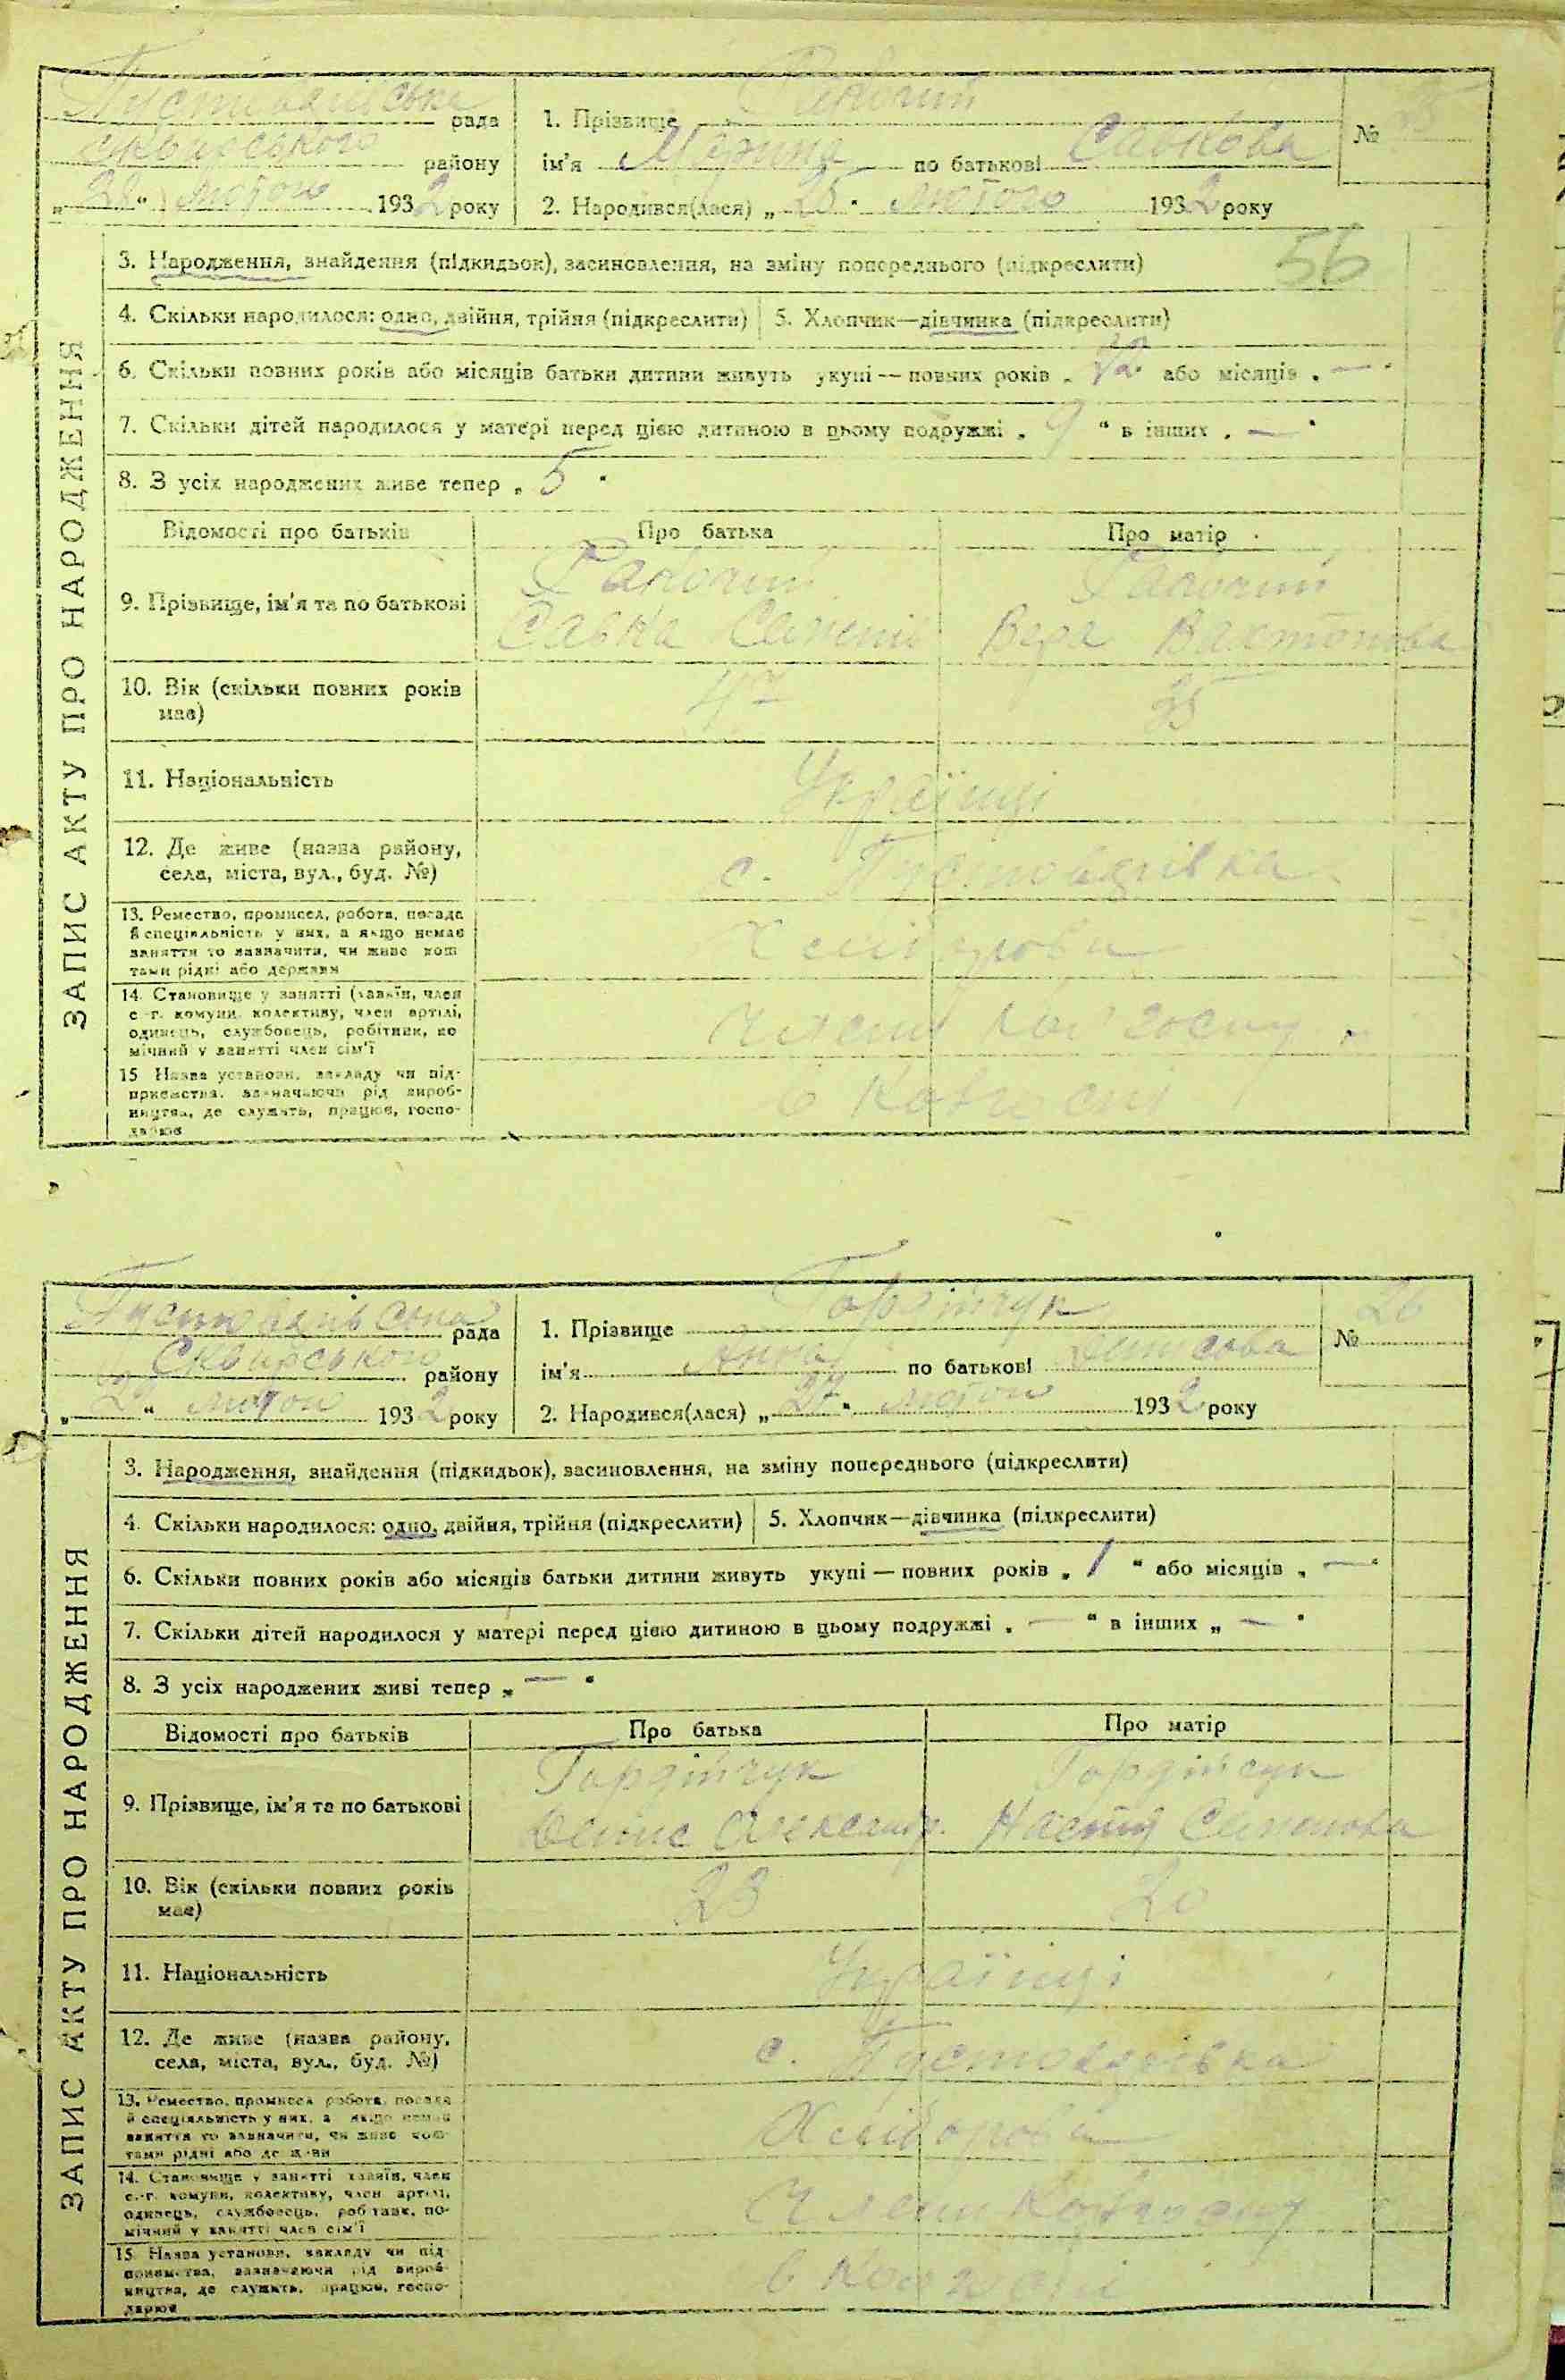 ЗАПИС АКТУ ПРО НАРОДЖЕННЯ
рада
Сквирського району
лютого 1932 року
1. Прізвище
ім'я по батькові Савкова
2. Народився(лася) „25“ лютого 1932 року
№
56
3. Народження, знайдення (підкидьок), засиновлення, на зміну попереднього (підкреслити)
4. Скільки народилося: одно, двійня, трійня (підкреслити)
5. Хлопчик—дівчинка (підкреслити)
6. Скільки повних років або місяців батьки дитини живуть укупі — повних років або місяців „—“
7. Скільки дітей народилося у матері перед цією дитиною в цьому подружжі „9“ в інших „—“
8. З усіх народжених живе тепер „5“
Відомості про батьків Про батька Про матір
9. Прізвище, ім'я та по батькові
Савка Вера
10. Вік (скільки повних років має) 35
11. Національність Українці
12. Де живе (назва району, села, міста, вул., буд. №) с. Пустоварівка
13. Ремество, промисел, робота, посада
й спеціяльність у них, а якщо немає
заняття то зазначити, чи живе кош
тами рідні або держави
Хлібороби
14. Становище у занятті (хазяїн, член
с.-г. комуни, колективу, член артілі,
одинець, службовець, робітник, по
мічний у занятті член сім'ї
Члени
15. Назва установи, закладу чи під-
приємства, зазначаючи рід вироб-
ництва, де служить, працює, госпо-
дарює
в
ЗАПИС АКТУ ПРО НАРОДЖЕННЯ
рада
Сквирського району
лютого 1932 року
1. Прізвище Гордійчук
ім'я Анна по батькові Денисова
2. Народився(лася) лютого 1932 року
№ 26
3. Народження, знайдення (підкидьок), засиновлення, на зміну попереднього (підкреслити)
4. Скільки народилося: одно, двійня, трійня (підкреслити)
5. Хлопчик—дівчинка (підкреслити)
6. Скільки повних років або місяців батьки дитини живуть укупі — повних років „1“ або місяців „—“
7. Скільки дітей народилося у матері перед цією дитиною в цьому подружжі „—“ в інших „—“
8. З усіх народжених живі тепер „—“
Відомості про батьків Про батька Про матір
9. Прізвище, ім'я та по батькові
Гордійчук Гордійчук
Денис Александр. Настя Семенова
10. Вік (скільки повних років має) 23 20
11. Національність Українці
12. Де живе (назва району, села, міста, вул., буд. №) с. Пустоварівка
13. Ремество, промисел, робота, посада
й спеціяльність у них, а якщо немає
заняття то зазначити, чи живе кош-
тами рідні або держави
Хлібороби
14. Становище у занятті хазяїн, член
с.-г. комуни, колективу, член артілі,
одинець, службовець, робітник, по-
мічний у занятті член сім'ї
Члени
15. Назва установи, закладу чи під
приємства, зазначаючи рід вироб-
ництва, де служить, працює, госпо-
дарює
в